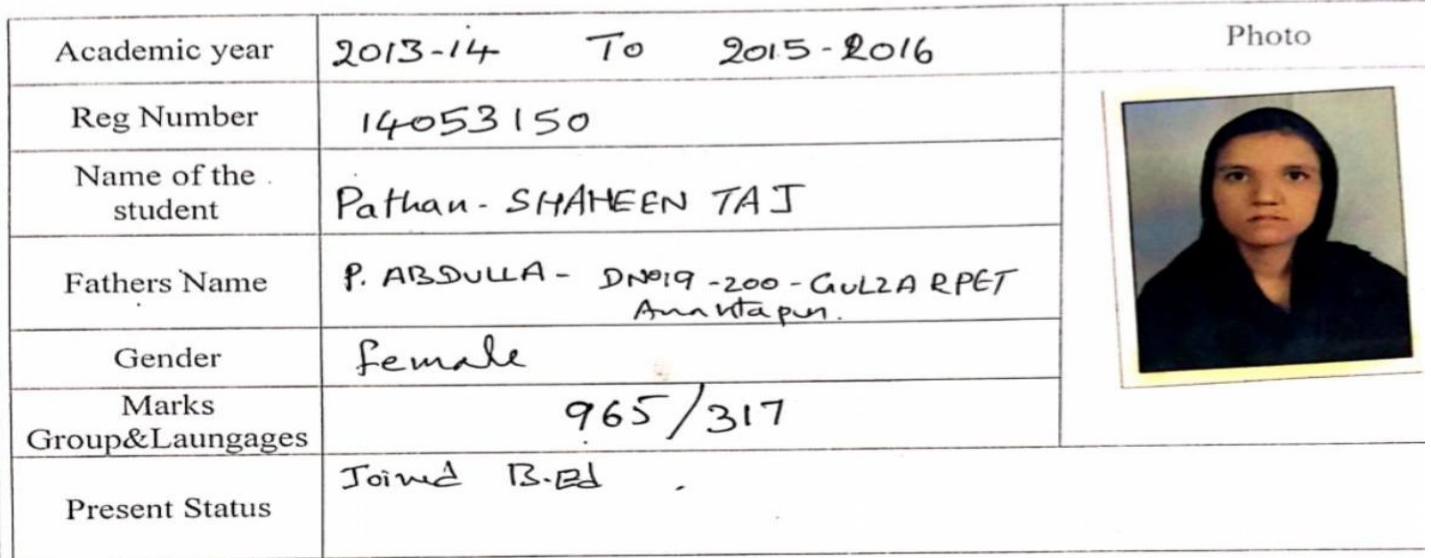 Academic year 2013-14 To 2015-2016
Photo
Reg Number 14053150
Name of the
student Pathan - SHAHEEN TAJ
Fathers Name P. ABDULLA - DNo19 -200 - GULZARPET
Anantapur.
Gender female
Marks
Group&Laungages 965/317
Present Status Joined B.Ed .